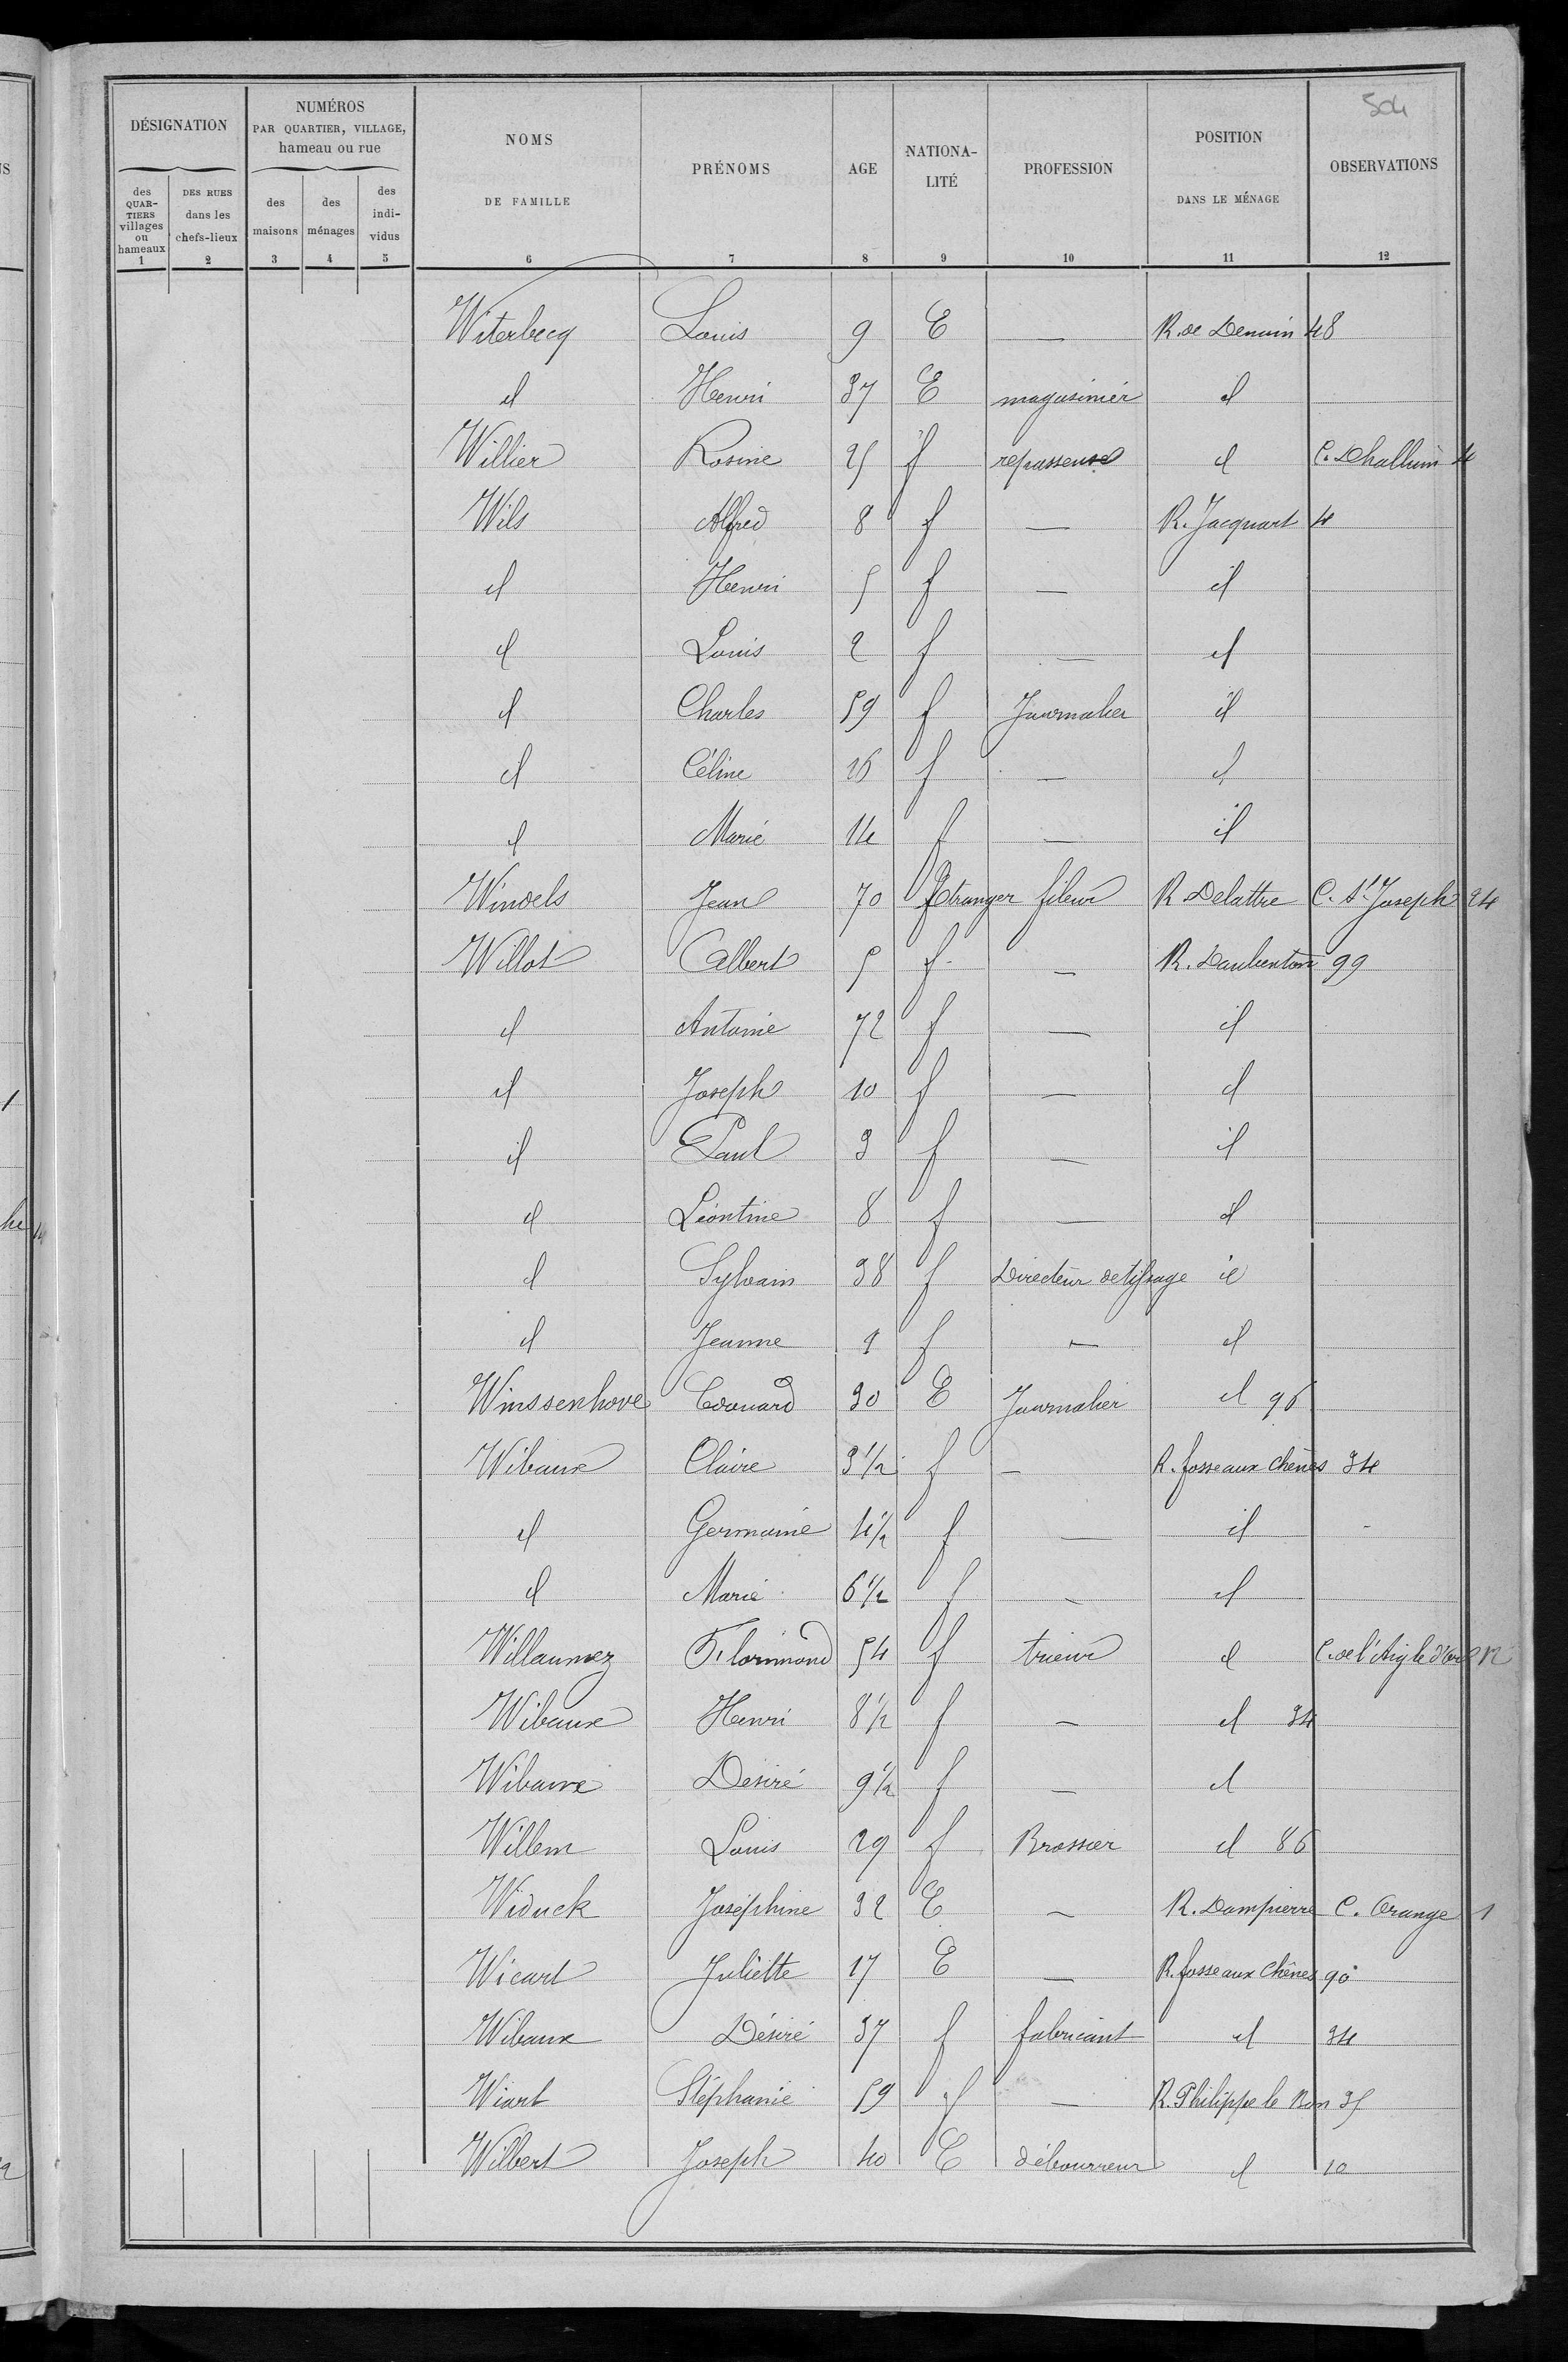 504
DÉSIGNATION NUMÉROS PAR QUARTIER, VILLAGE, hameau ou rue NOMS DE FAMILLE PRÉNOMS AGE NATIONA-LITÉ PROFESSION POSITION DANS LE MÉNAGE OBSERVATIONS
des QUAR-TIERS villages ou hameaux DES RUES dans les chefs-lieux des maisons des ménages des indi-vidus
1 2 3 4 5 6 7 8 9 10 11 12
Witerbecq Louis 9 E — R. de Denain 48
id Henri 37 E magasinier id
Willier Rosine 25 f repasseuse id C. Dhalluin 4
Wils Alfred 8 f — R. Jacquart 4
id Henri 5 f — id
id Louis 2 f — id
id Charles 59 f Journalier id
id Céline 16 f — id
id Marie 14 f — id
Windels Jean 70 Etranger fileur R Delattre C. St Joseph 24
Willot Albert 5 f — R. Daubenton 99
id Antoine 72 f — id
id Joseph 10 f — id
id Paul 3 f — id
id Léontine 8 f — id
id Sylvain 38 f Directeur de tissage id
id Jeanne 1 f — id
Winssenhove Edouard 30 E Journalier id 96
Wibaux Claire 3 1/2 f — R. fosse aux chênes 34
id Germaine 4 1/2 f — id
id Marie 6 1/2 f — id
Willaumez Florimond 54 f trieur id C. de l'Aigle d'or 12
Wibaux Henri 8 1/2 f — id 34
Wibaux Désiré 9 1/2 f — id
Willem Louis 29 f Brossier id 86
Widuck Joséphine 32 E — R. Dampierre C. Orange 1
Wicart Juliette 17 E — R. fosse aux chênes 90
Wibaux Désiré 37 f fabricant id 34
Wiart Stéphanie 59 f — R. Philippe le Bon 35
Wilbert Joseph 40 E débourreur id 10